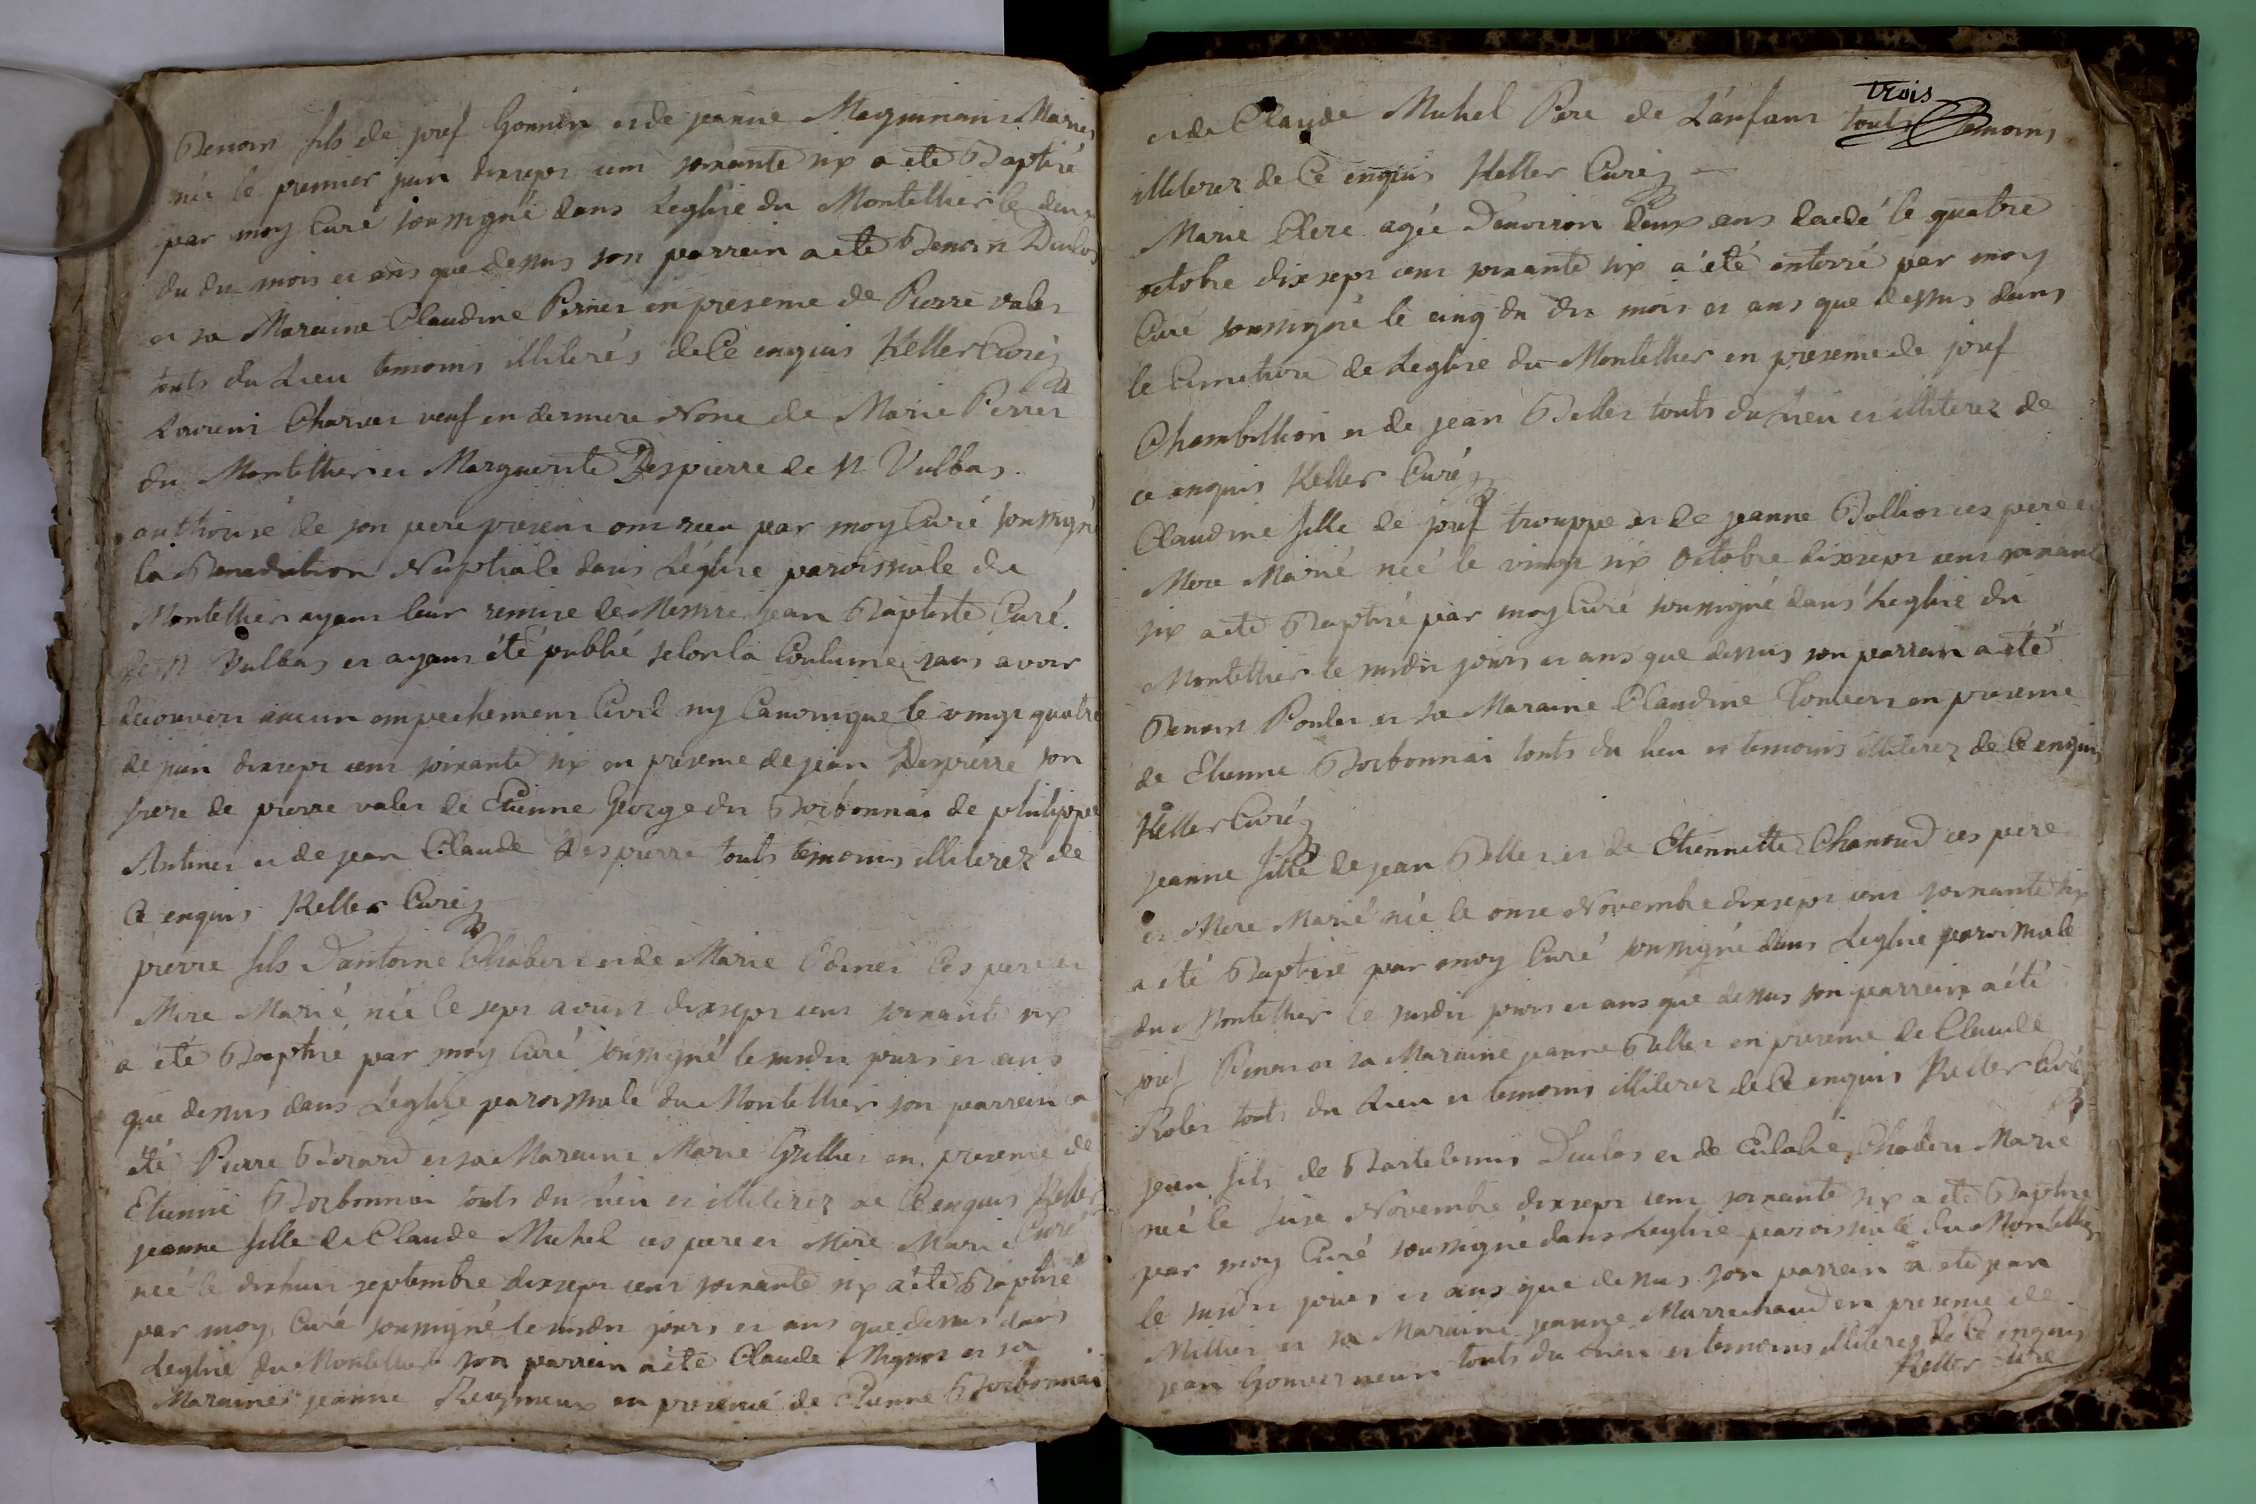 Benoin fils de josef Gonnin et de jeanne Maquinant Mariés
née le premier juin dixsept cent soixante six a eté Baptisé
par moy Curé soussigné dans Leglise du Montellier le deux
du du mois et ans que dessus son parrein a eté Benoin Duclos
et sa Maraine Claudine Perner en presence de Pierre valet
touts du Lieu temoins illiterés de Ce enquis Keller Curé
Laurent Charvet veuf en derniere None de Marie Perret
du Montellier et Marguerite Despierre de St Vulbas
authorisé de son pere present ont recu par moy Curé soussigné
la Benediction Nuptiale dans Léglise paroissiale du
Montellier ayant leur remise de Messire jean Baptiste Curé
de St Vulbas et ayant été publié selon la Coutume sans avoir
decouvert aucun empechement Civil ny Canonique le vingt quatre
de juin dixsept cent soixante six en presence de jean Despierre son
frere de pierre valet de Etienne George du Borbonnai de philippe
Antinet et de jean Claude Despierre touts temoins illiterez de
Ce enquis Keller Curé
pierre fils D'antoine Chabert et de Marie Ces pere et
Mere Marié née le sept aoust dixsept cent soixante six
a eté Baptisé par moy Curé soussigné le susdit jours et ans
que dessus dans Léglise paroissiale du Montellier son parrein a
été Pierre Berard et sa Maraine Marie Grillet en presence de
Etienne Borbonnai touts du lieu et illiterez de Ce enquis Keller
Curé
jeanne fille de Claude Muhel ces pere et Mere Marié
née le dixhuit septembre dixsept cent soixante six a eté Baptisé
par moy Curé soussigné le susdit jours et ans que dessus dans
Leglise du Montellier son parrein a eté Claude Mignot et sa
Maraine jeanne Reymeux en presence de Etienne Borbonnai
et de Claude Muhel Pere de Lanfant trois
touts Temoins
illiterez de Ce enquis Keller Curé
Marie Clere agée Denviron deux ans decedé le quatre
octobre dixsept cent soixante six a été enterré par moy
Curé soussigné le cinq du du mois et ans que dessus dans
le Cimetiere de Leglise du Montellier en presence de josef
Chambillion et de jean Bellet touts du lieu et illiterez de
ce enquis Keller Curé
Claudine fille de josef trouppe et de jeanne Bollion ces pere et
Mere Marié née le vingt six Octobre dixsept cent soixante
six a eté Baptisé par moy Curé soussigné dans Leglise du
Montellier le susdit jours et ans que dessus son parrain a eté
Benoin Poulet et sa Maraine Claudine Convert en presence
de Etienne Borbonnai touts du lieu et temoins illiterez de Ce enquis
Keller Curé
jeanne fille de jean Bellet et de Etiennette Chanoud ces pere
et Mere Marié née le onze Novembre dixsept cent soixante six
a eté Baptisé par moy Curé soussigné dans Leglise paroissiale
du Montellier le susdit jours et ans que dessus son parrein a été
josef et sa Maraine jeanne Bellet en presence de Claude
Robin touts du Lieu et temoins illiterez de Ce enquis Keller Curé
jean fils de Bartelemis Duclos et de Eulalie Chabert Marié
née le seize Novembre dixsept cent soixante six a eté Baptisé
par moy Curé soussigné dans Leglise paroissiale du Montellier
le susdit jours et ans que dessus son parrein a eté jean
Millier et sa Maraine jeanne Marrechaud en presence de
jean Gouverneur touts du lieu et temoins illiterez de Ce enquis
Keller Curé